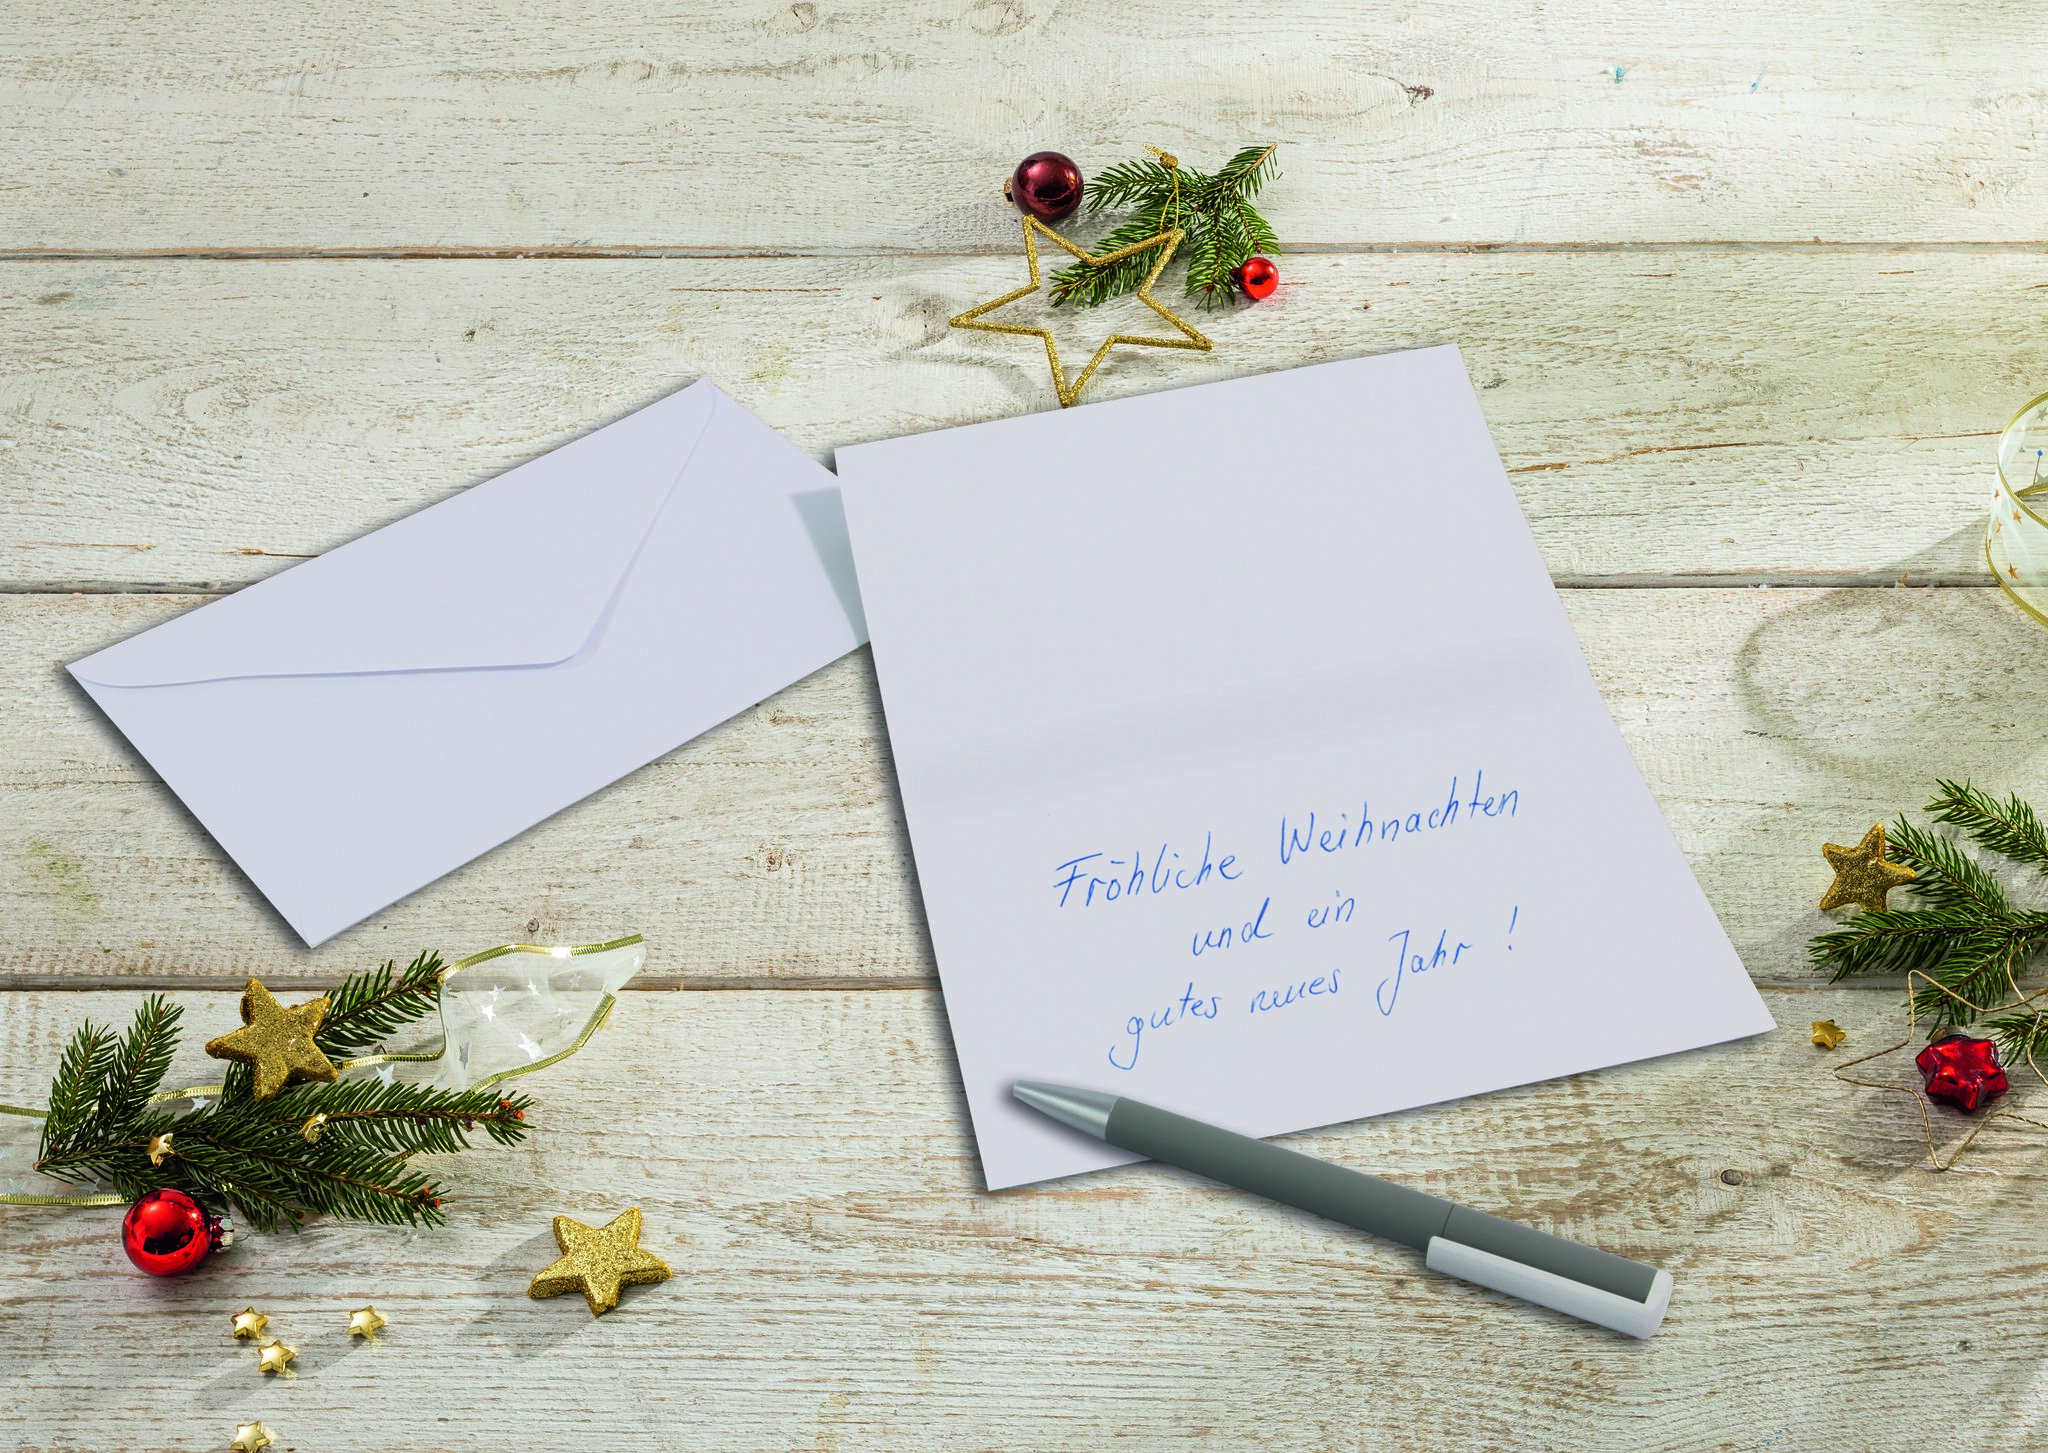 Fröhliche Weihnachten
und ein
gutes neues Jahr !